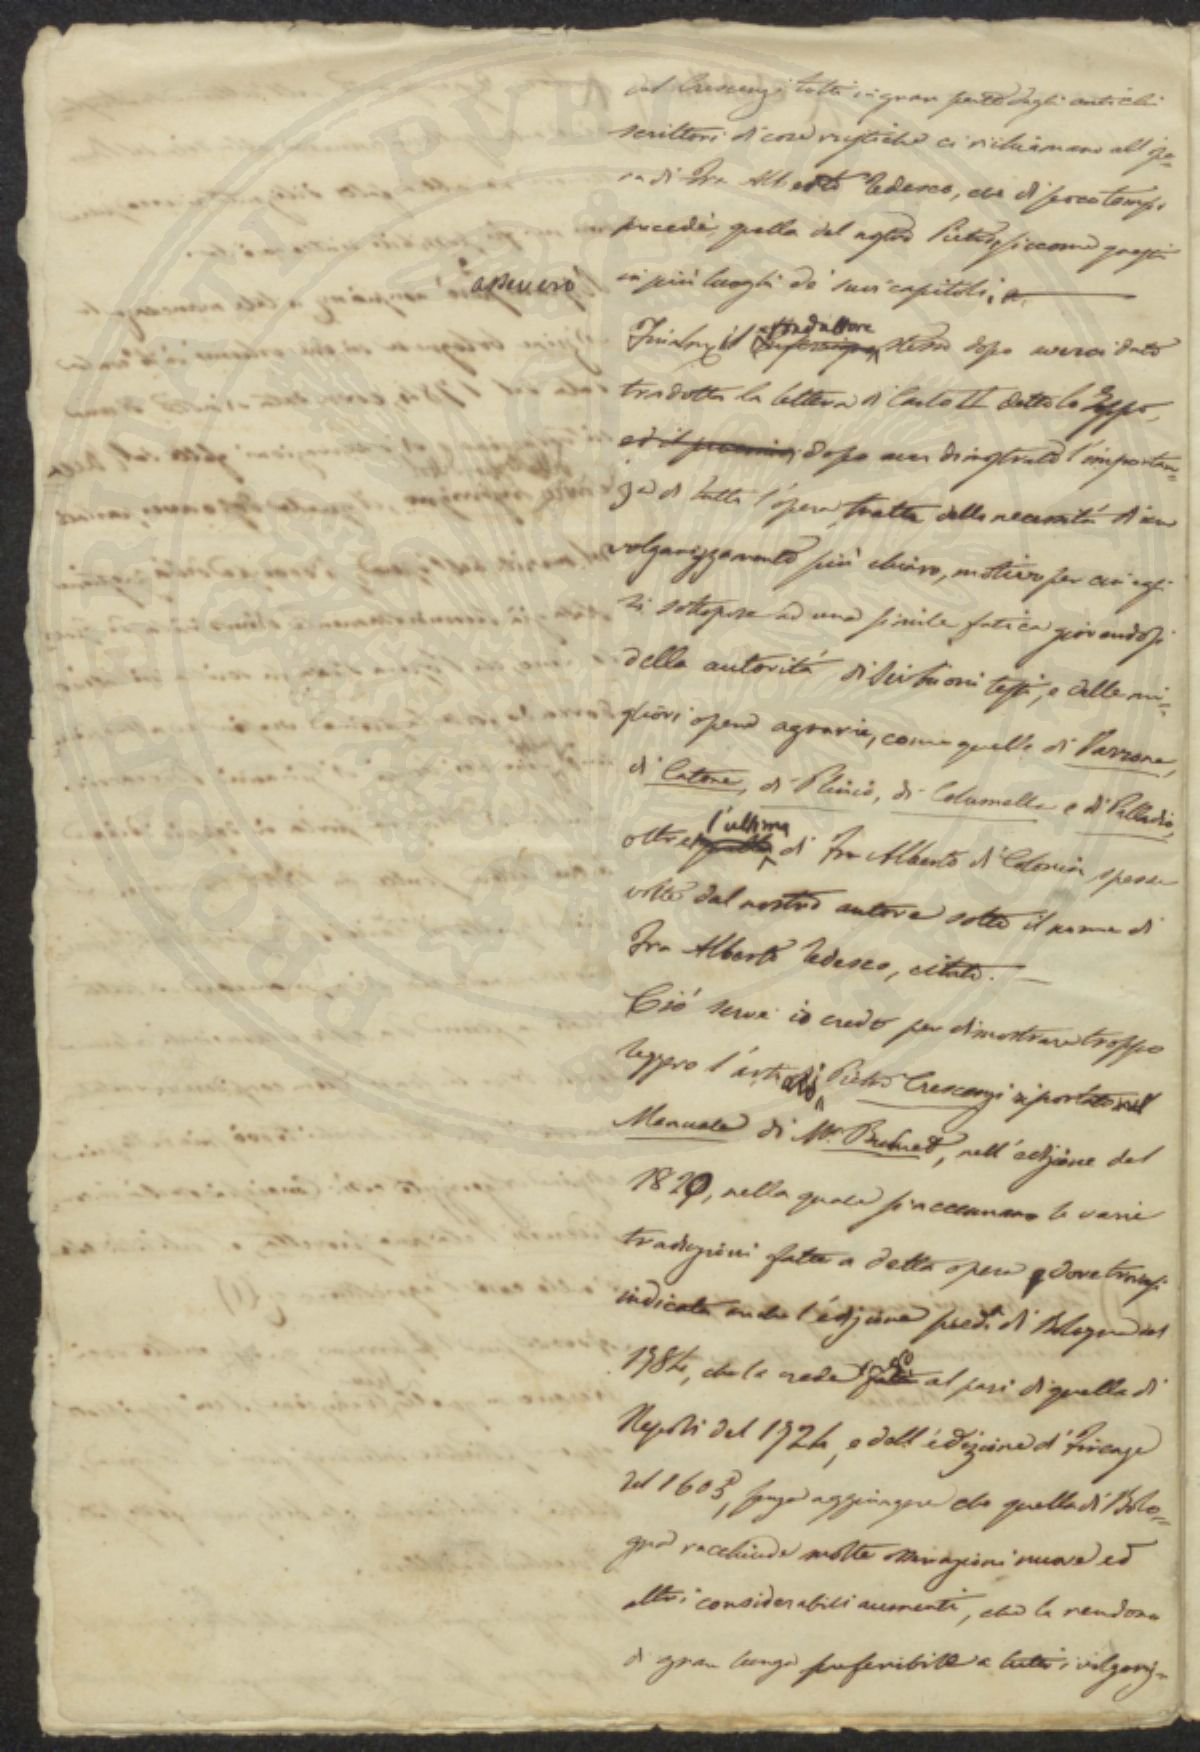 del Crescenzi tolti in gran parte dagli antichi
scrittori di cose rustiche ci richiamano all'ope-
ra di Fra Alberto Tedesco, che di poco tempo
precede quella del nostro Pietro, siccome
in più luoghi de' suoi capitoli,
ossivero
il traduttore stesso dopo averci dato
tradotta la lettera di Carlo II detto lo Zoppo,
ed il proemio, dopo aver dimostrato l'importan-
za di tutta l'opera, tratta della necessità di un
volgarizzamento più chiaro, motivo per cui egli
si sottopose ad una simile fatica giovandosi
della autorità di buoni testi, e delle mi-
gliori opere agrarie, come quelle di Varrone,
di Catone, di Plinio, di Columella e di Palladio,
oltre l'ultima quella di Fra Alberto di Colonia, spesse
volte dal nostro autore sotto il nome di
Fra Alberto Tedesco, citato. —
Ciò serva io credo per dimostrare troppo
leggero l'art. di Pietro Crescenzi riportato nel
Manuale di Mr. Brunet, nell'edizione del
1820, nella quale si accennano le varie
traduzioni fatte a detta opera e dove trovasi
indicata anche l'edizione pred.a di Bologna del
1784, che la crede al pari di quella di
Napoli del 1724, e dell'edizione di Firenze
del 1605, senza aggiungere che quella di Bolo-
gna racchiude molte osservazioni nuove ed
altri considerabili aumenti, che la rendono
di gran lunga preferibile a tutti i volgariz-